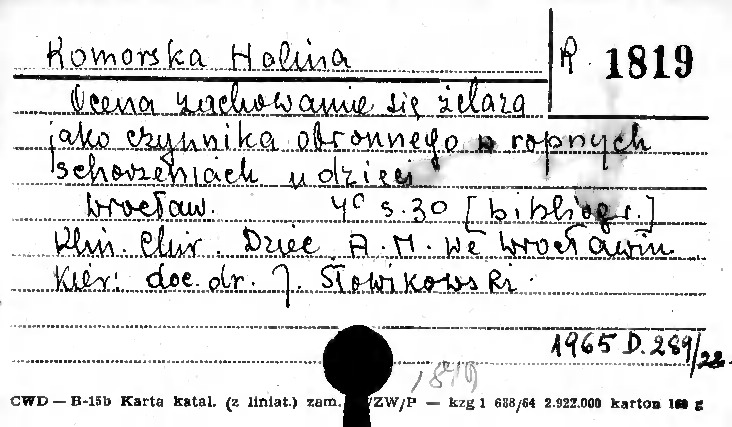 Komorska Halina R. 1819
Ocena zachowanie się żelaza
jako czynnika obronnego w ropnych
schorzeniach u dzieci
Wrocław. 4° s. 30 [bibliogr.]
Klin. Chir. Dziec. A. M. we Wrocławiu
Kier: doc. dr. J. Słowikowski.
1965 D. 289/22.
1819
CWD — B-15b Karta katal. (z liniat.) zam. /ZW/P — kzg 1 688/64 2.922.000 karton g